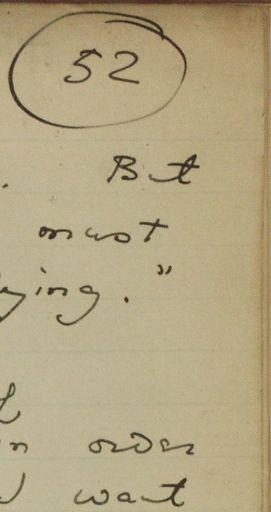 52
. But
must
ying."
order
want